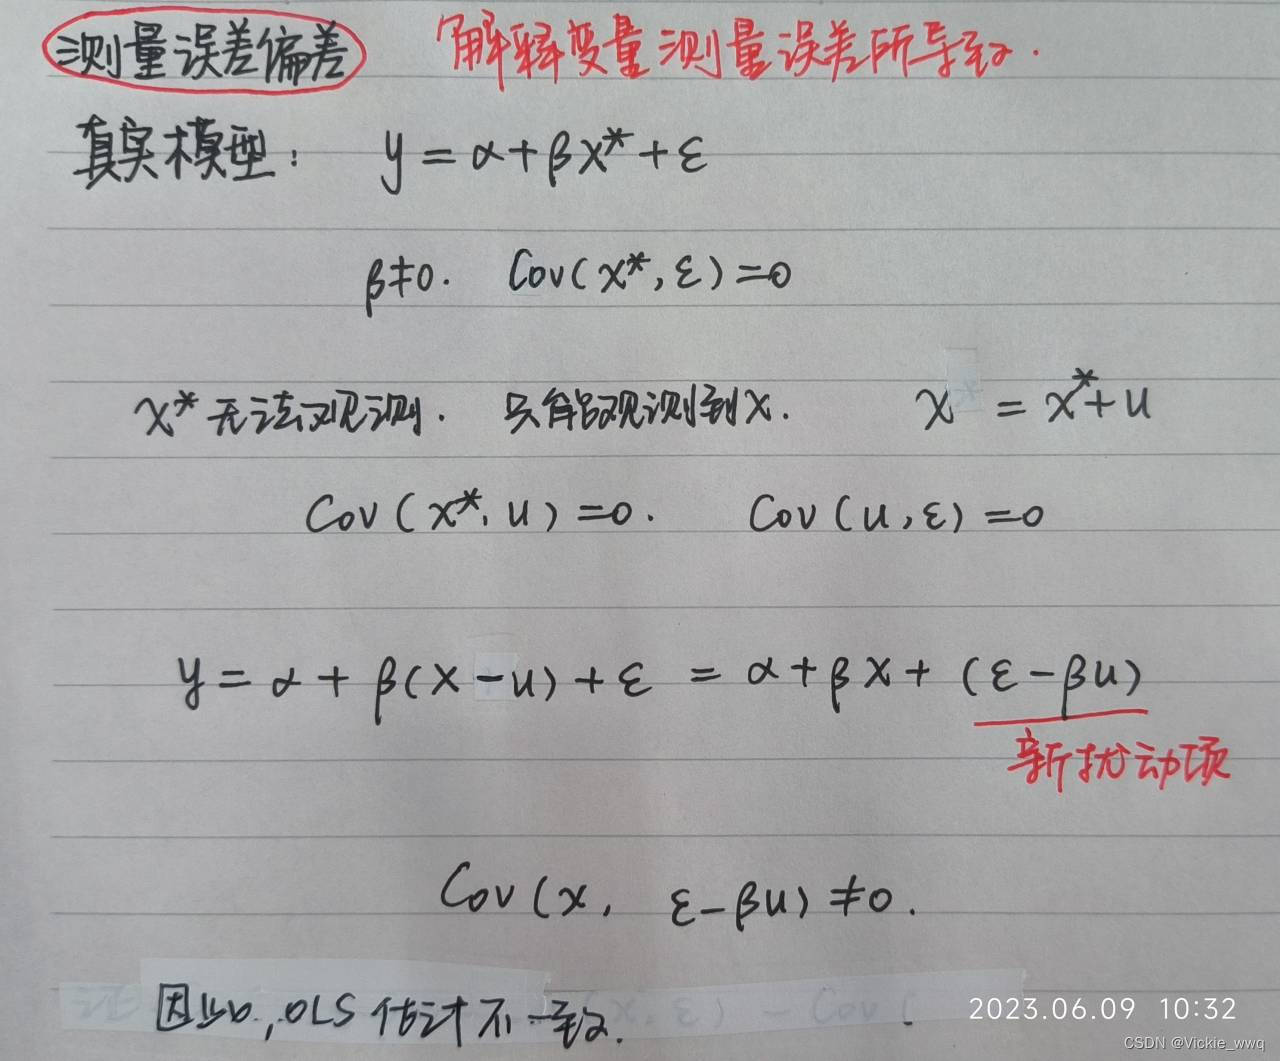 测量误差偏差 解释变量测量误差所导致.
真实模型: y = α + βx* + ε
β≠0. Cov(x*, ε) = 0
x* 无法观测. 只能观测到x. x = x* + u
Cov(x*, u) = 0. Cov(u, ε) = 0
y = α + β(x - u) + ε = α + βx + (ε - βu)
新扰动项
Cov(x, ε - βu) ≠ 0.
因此, OLS 估计不一致.
2023.06.09 10:32
CSDN @Vickie_wwq